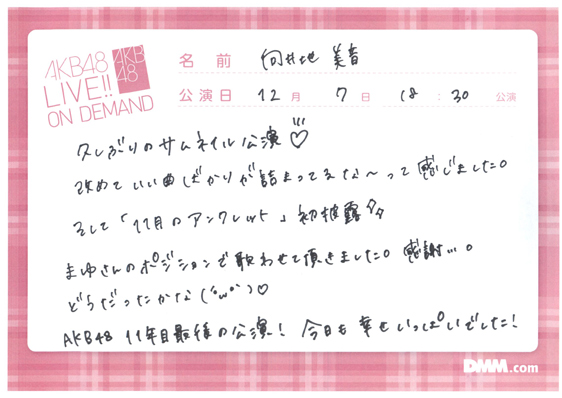 AKB48
LIVE!!
ON DEMAND
AKB
48
名 前 向井地 美音
公演日 12月 7日 18:30 公演
久しぶりのサムネイル公演♡
改めていい曲ばかりが詰まってるな〜って感じました。
そして「11月のアンクレット」初披露
まゆさんのポジションで歌わせて頂きました。感謝…。
どうだったかな(´ω`)♡
AKB48 11年目最後の公演! 今日も幸せいっぱいでした!
DMM.com